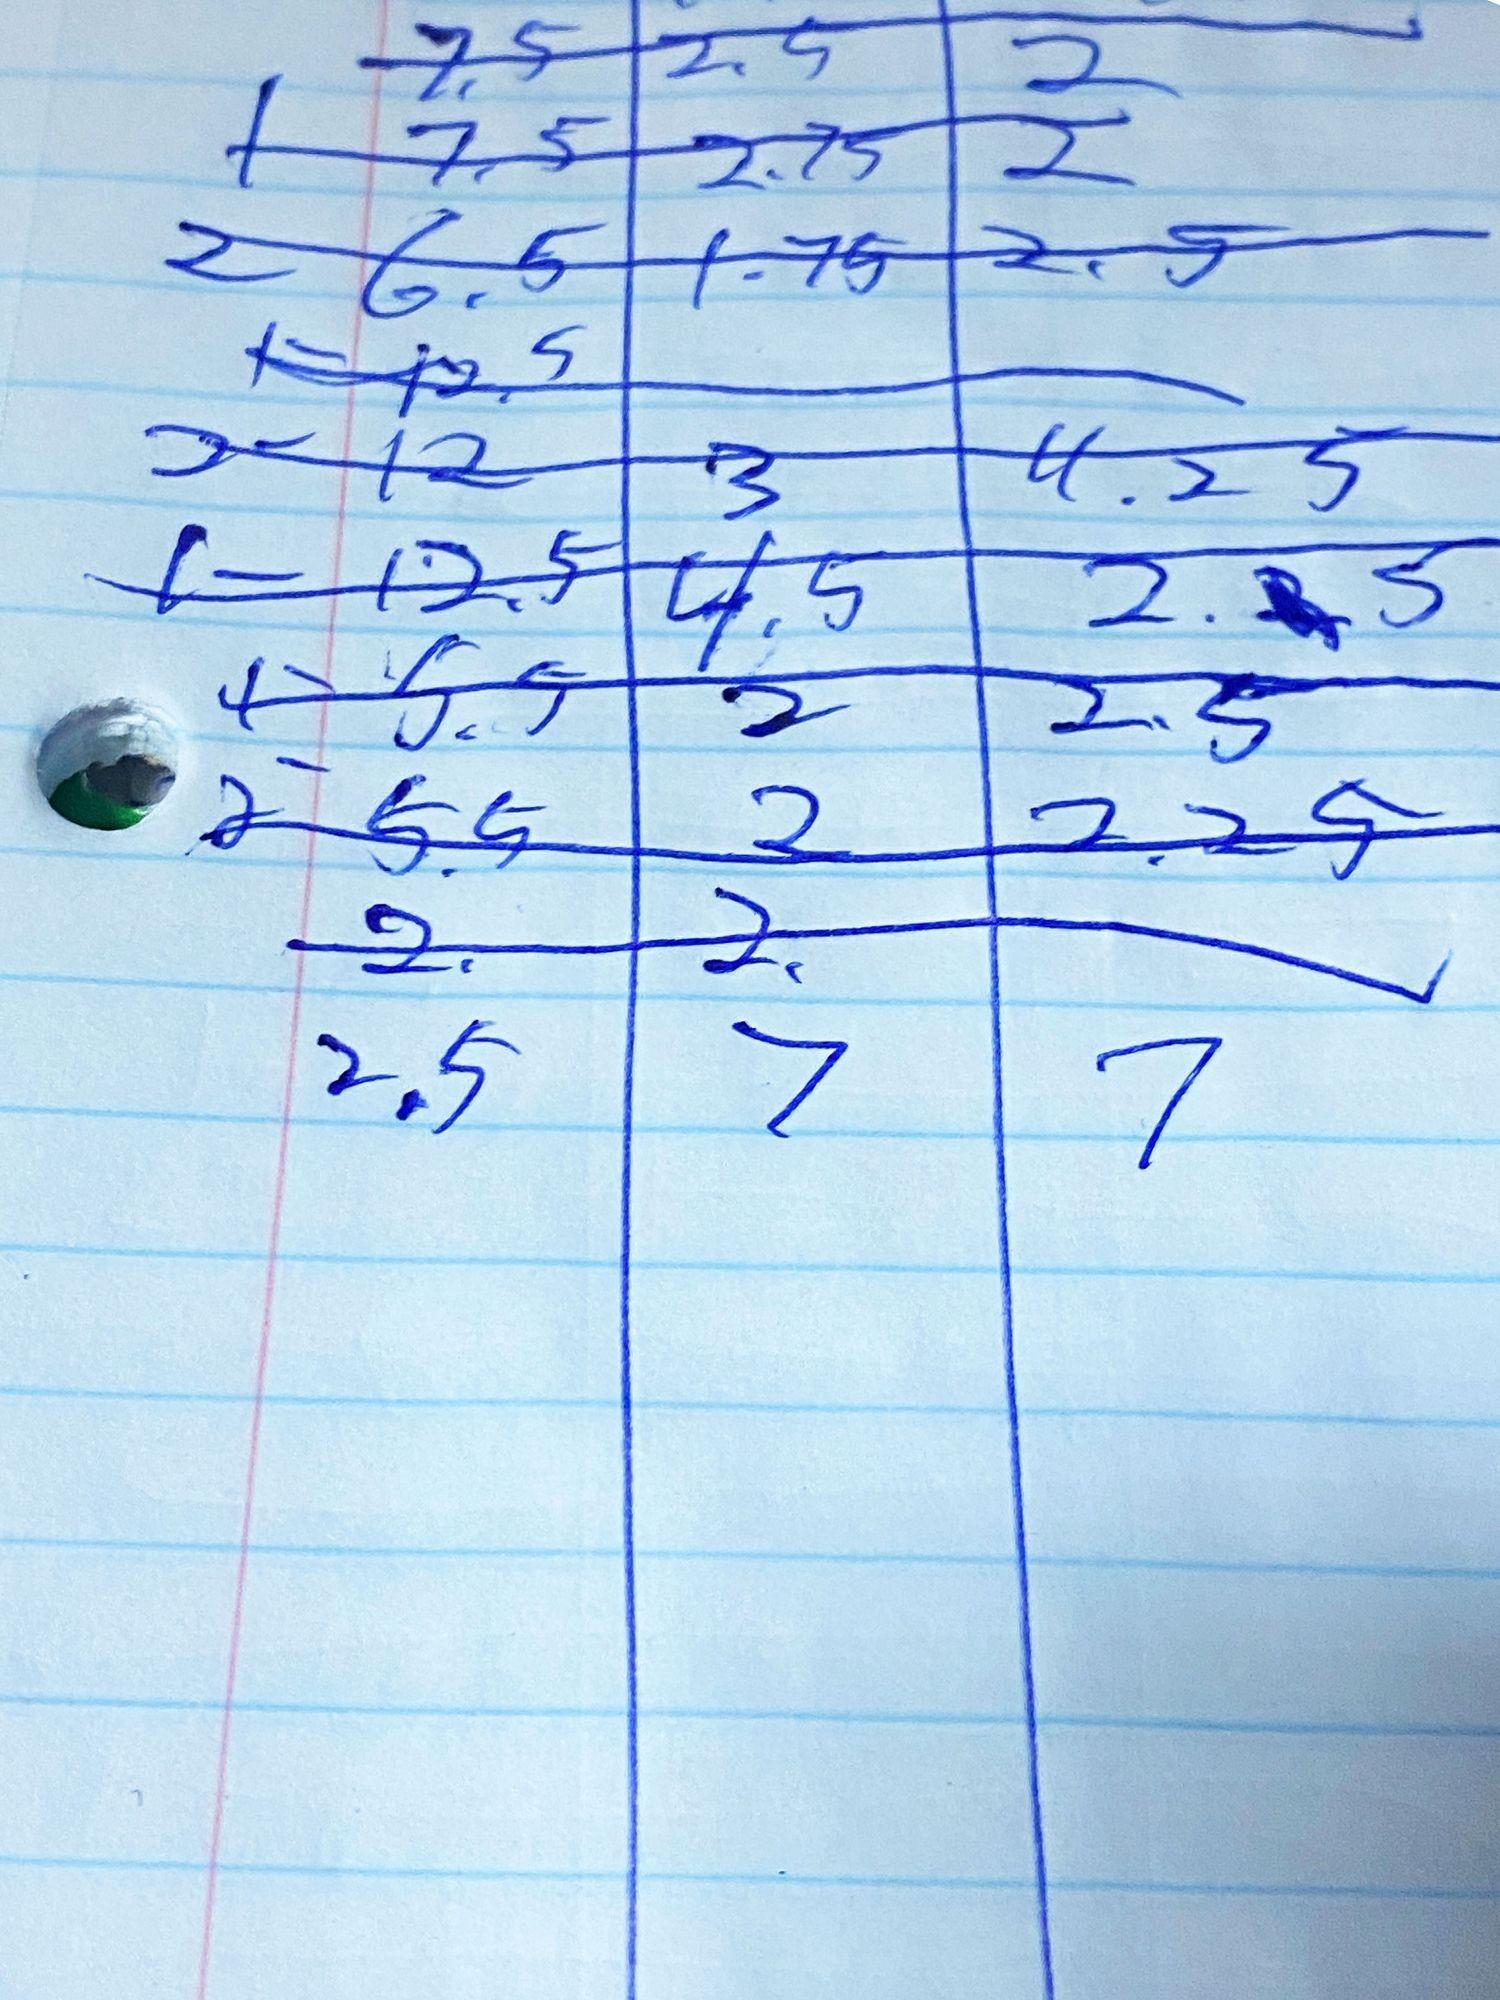 7.5 2.5 2
1 7.5 2.75 2
2 6.5 1.75 2.5
1= 12.5
2- 12 3 4.25
1- 12.5 4.5 2. 5
1- 5.5 2 2.5
2- 5.5 2 2.25
2. 2.
2.5 7 7